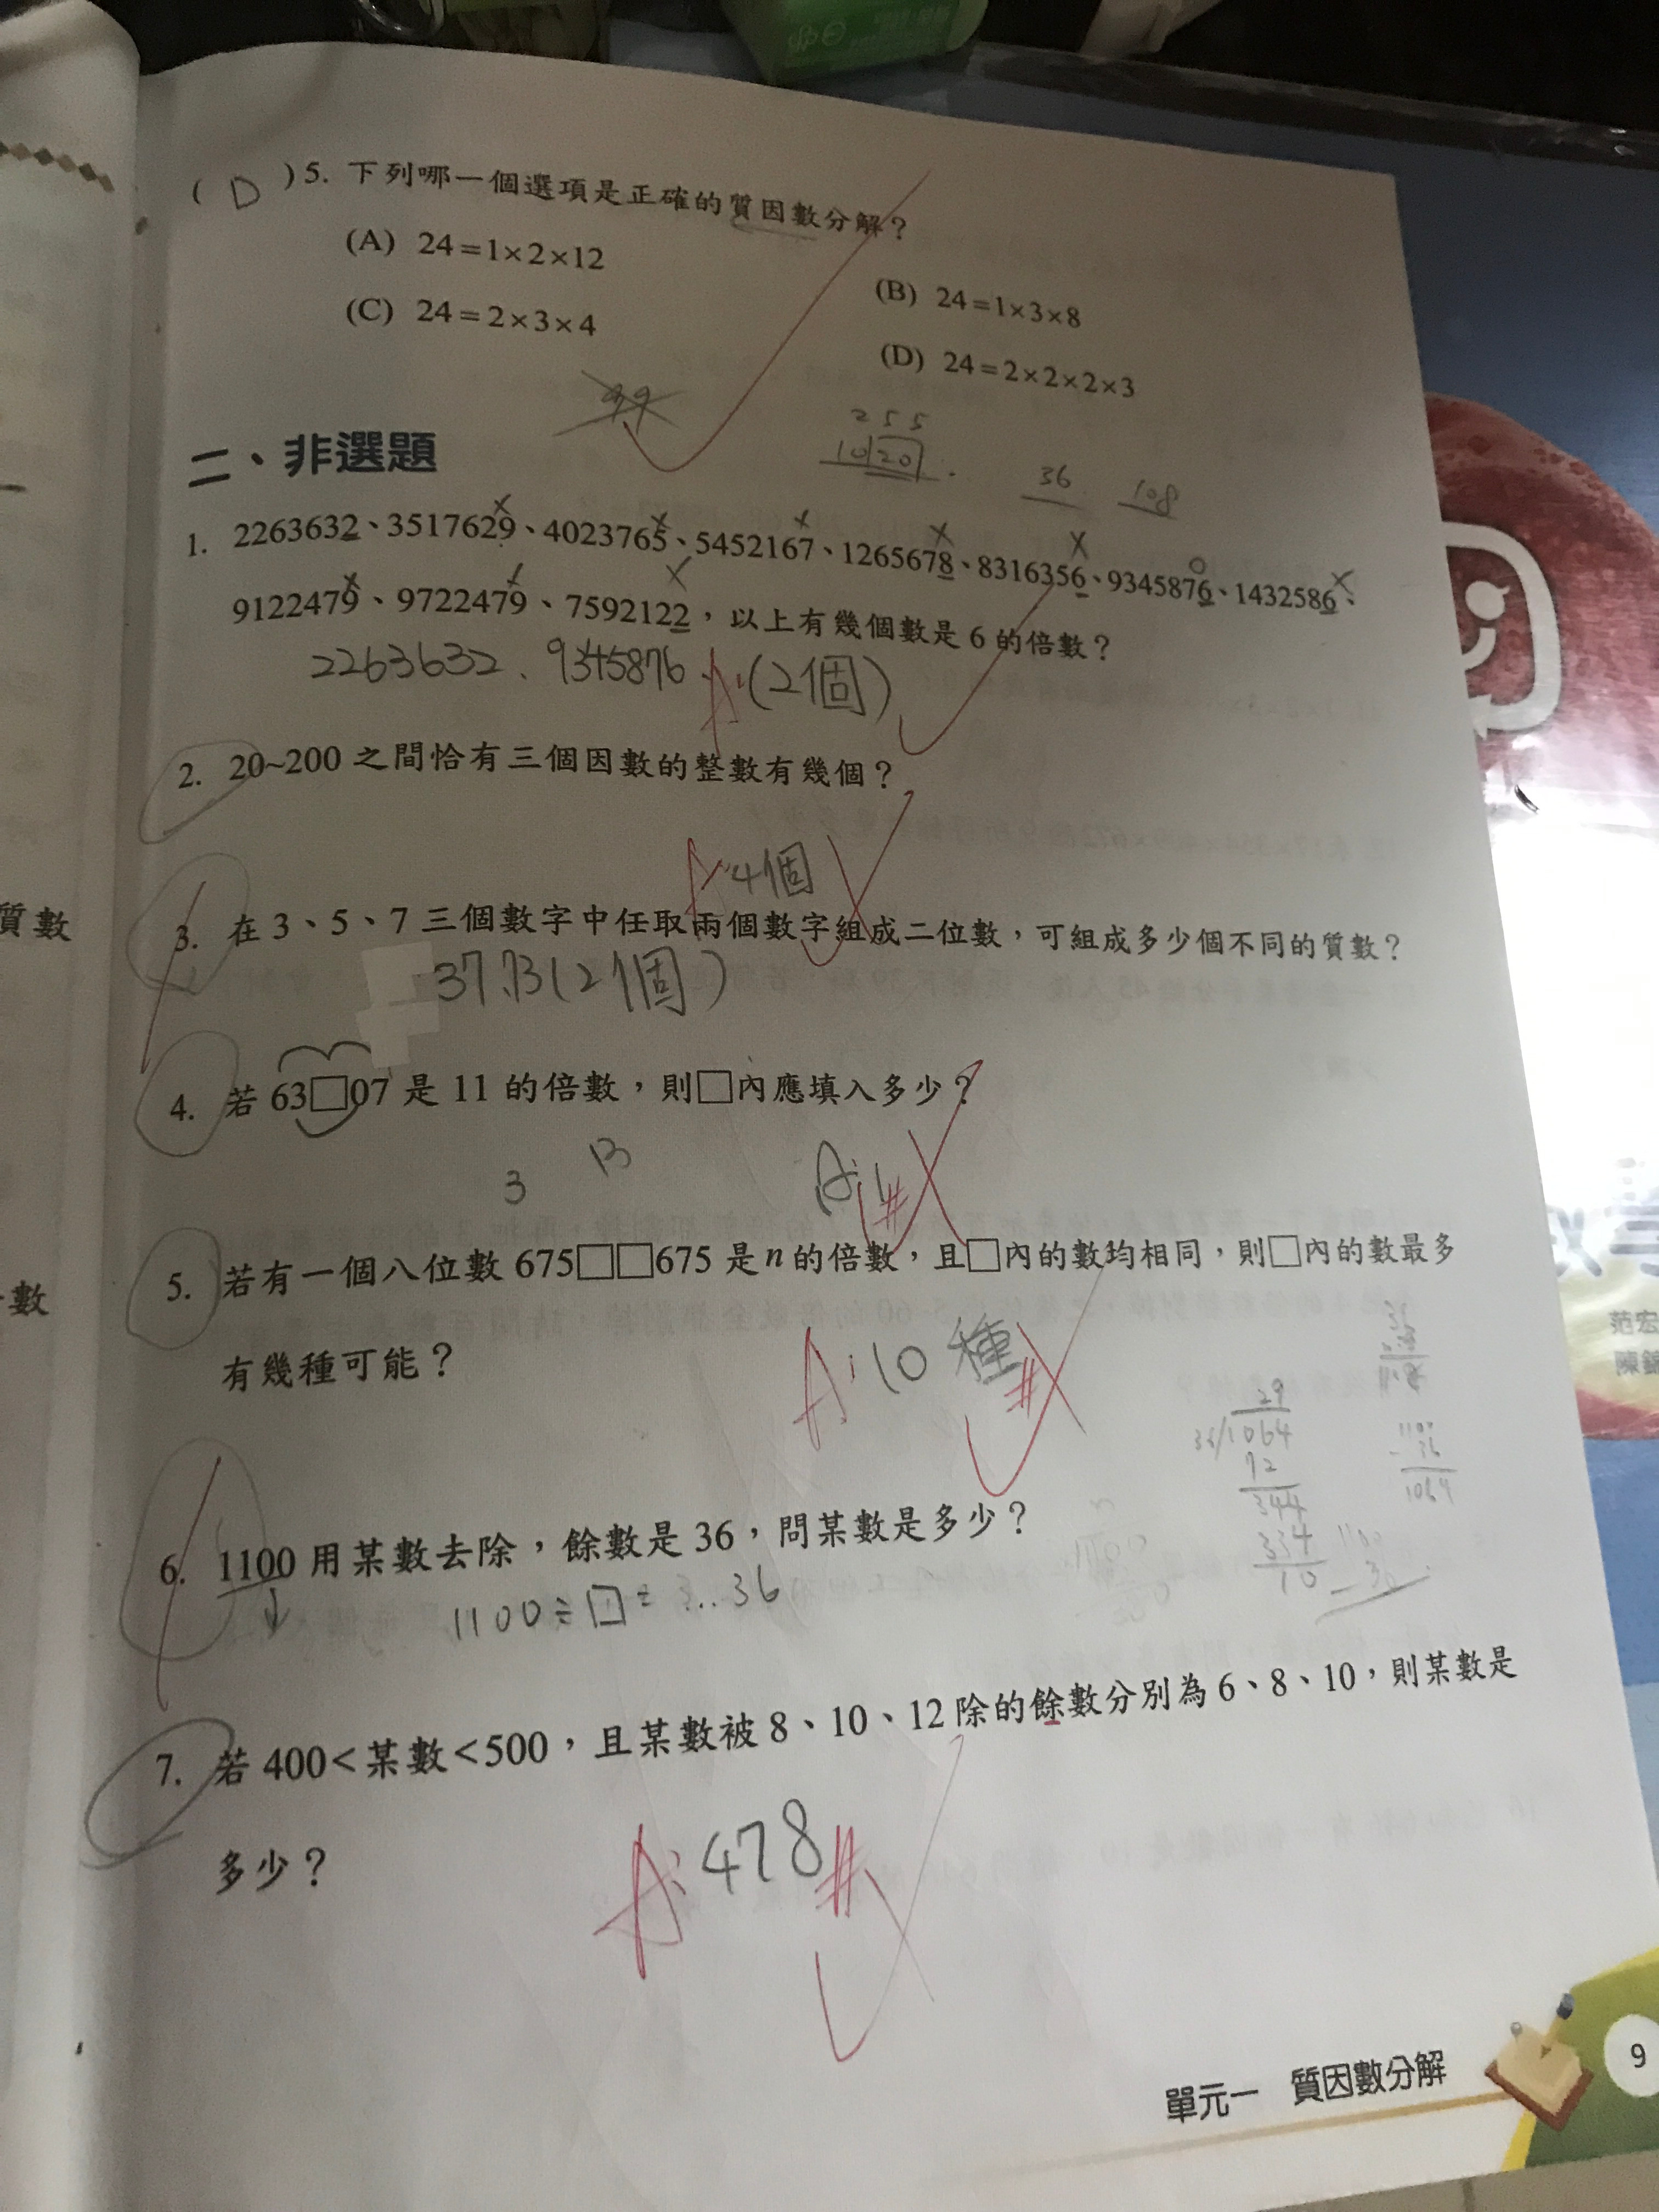 ( D ) 5. 下列哪一個選項是正確的質因數分解？
(A) 24=1×2×12
(B) 24=1×3×8
(C) 24=2×3×4
(D) 24=2×2×2×3
255
10|20
36 108
二、非選題
1. 2263632、3517629、4023765、5452167、1265678、8316356、9345876、1432586、
9122479、9722479、7592122，以上有幾個數是6的倍數？
2263632、9345876 A:(2個)
2. 20~200之間恰有三個因數的整數有幾個？
A:4個
3. 在3、5、7三個數字中任取兩個數字組成二位數，可組成多少個不同的質數？
37.73(2個)
4. 若63□07是11的倍數，則□內應填入多少？
3 13 A:1#
5. 若有一個八位數675□□675是n的倍數，且□內的數均相同，則□內的數最多
有幾種可能？
A:10種#
29
36/1064
72
344
334
10
1100
-36
1064
6. 1100用某數去除，餘數是36，問某數是多少？
1100÷□=?...36
7. 若400<某數<500，且某數被8、10、12除的餘數分別為6、8、10，則某數是
多少？
A:478#
單元一 質因數分解
9
質數
數
范宏